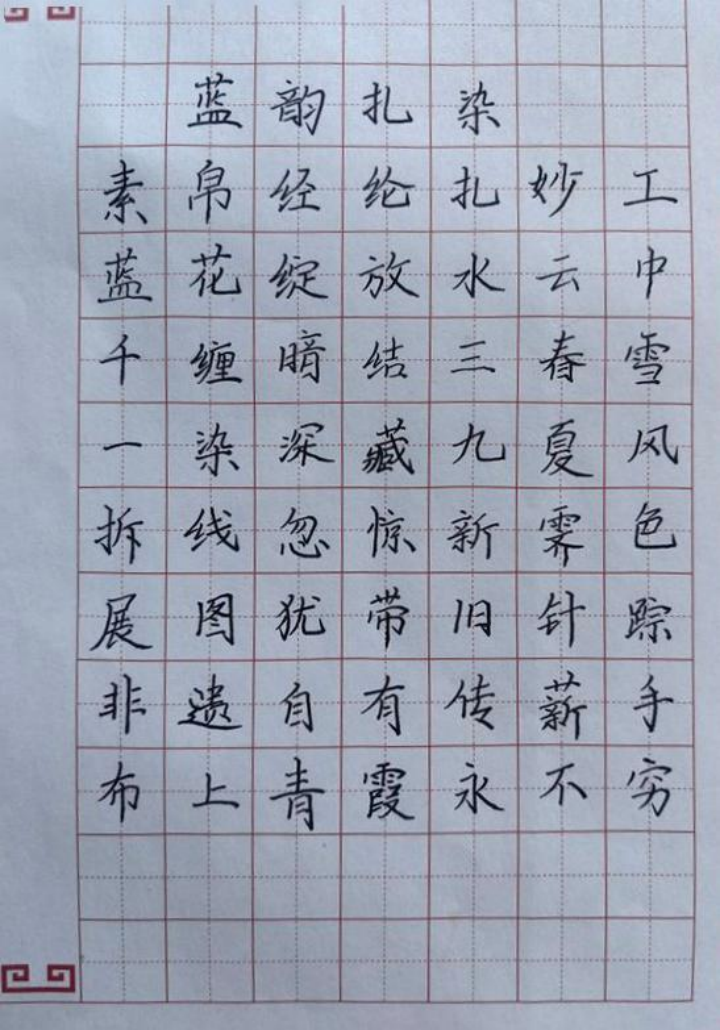 蓝韵扎染
素帛经纶扎妙工
蓝花绽放水云中
千缠暗结三春雪
一染深藏九夏风
拆线忽惊新霁色
展图犹带旧针踪
非遗自有传薪手
布上青霞永不穷